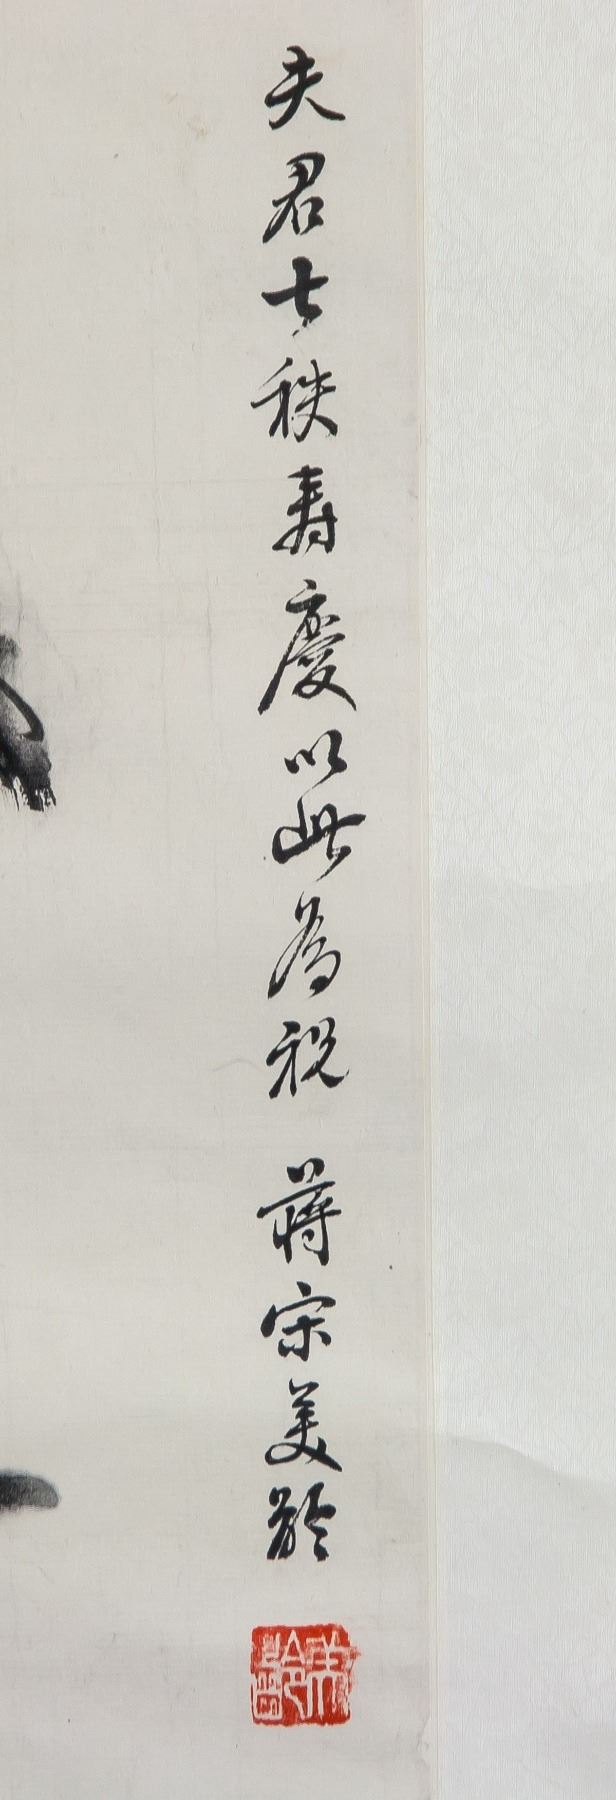 夫君七秩寿慶以此為祝 蔣宋美齡
美齡